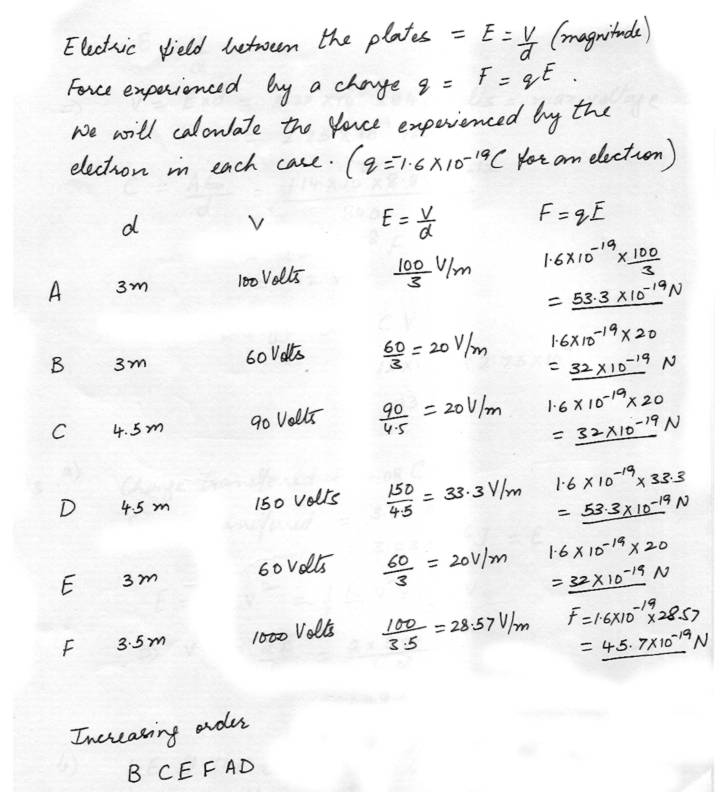 Electric field between the plates = E = V/d (magnitude)
Force experienced by a charge q = F = qE.
We will calculate the force experienced by the
electron in each case. (q = -1.6 X 10^-19 C for an electron)
d V E = V/d F = qE
A 3m 100 Volts 100/3 V/m 1.6X10^-19 X 100/3
= 53.3 X10^-19 N
B 3m 60 Volts 60/3 = 20 V/m 1.6X10^-19 X 20
= 32 X 10^-19 N
C 4.5m 90 Volts 90/4.5 = 20 V/m 1.6 X 10^-19 X 20
= 32X10^-19 N
D 4.5 m 150 Volts 150/4.5 = 33.3 V/m 1.6 X 10^-19 X 33.3
= 53.3X10^-19 N
E 3m 60 Volts 60/3 = 20V/m 1.6 X 10^-19 X 20
= 32 X 10^-19 N
F 3.5m 1000 Volts 100/3.5 = 28.57 V/m F = 1.6X10^-19 X 28.57
= 45.7X10^-19 N
Increasing order
B C E F A D